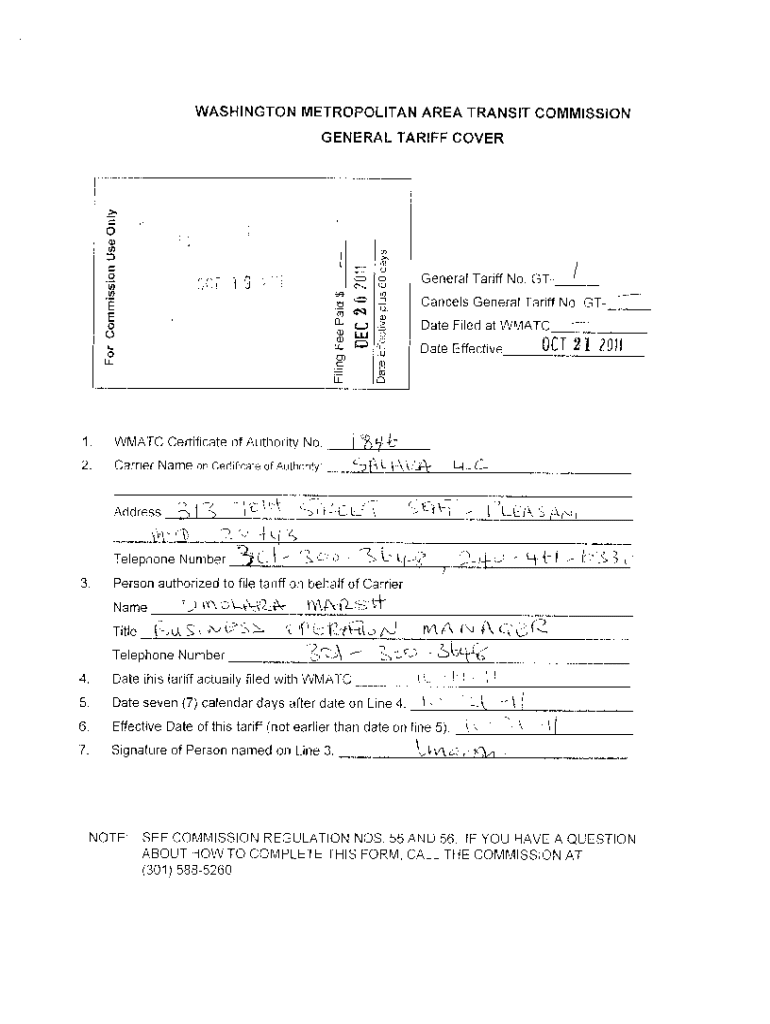 WASHINGTON METROPOLITAN AREA TRANSIT COMMISSION
GENERAL TARIFF COVER
For Commission Use Only
OCT 19
Filing Fee Paid $ --
DEC 20 2011
Date Effective plus 60 days
General Tariff No. GT- 1
Cancels General Tariff No. GT- —
Date Filed at WMATC —
Date Effective OCT 21 2011
1. WMATC Certificate of Authority No. 1846
2. Carrier Name on Certificate of Authority:
Address 313 STREET SEAT - PLEASANT
MD
Telephone Number 301 - 300 - 3648,
3. Person authorized to file tariff on behalf of Carrier
Name OMOLARA MARSH
Title BUSINESS OPERATION MANAGER
Telephone Number 301 - 300 - 3648
4. Date this tariff actually filed with WMATC
5. Date seven (7) calendar days after date on Line 4.
6. Effective Date of this tariff (not earlier than date on line 5).
7. Signature of Person named on Line 3.
NOTE: SEE COMMISSION REGULATION NOS. 55 AND 56. IF YOU HAVE A QUESTION
ABOUT HOW TO COMPLETE THIS FORM, CALL THE COMMISSION AT
(301) 588-5260